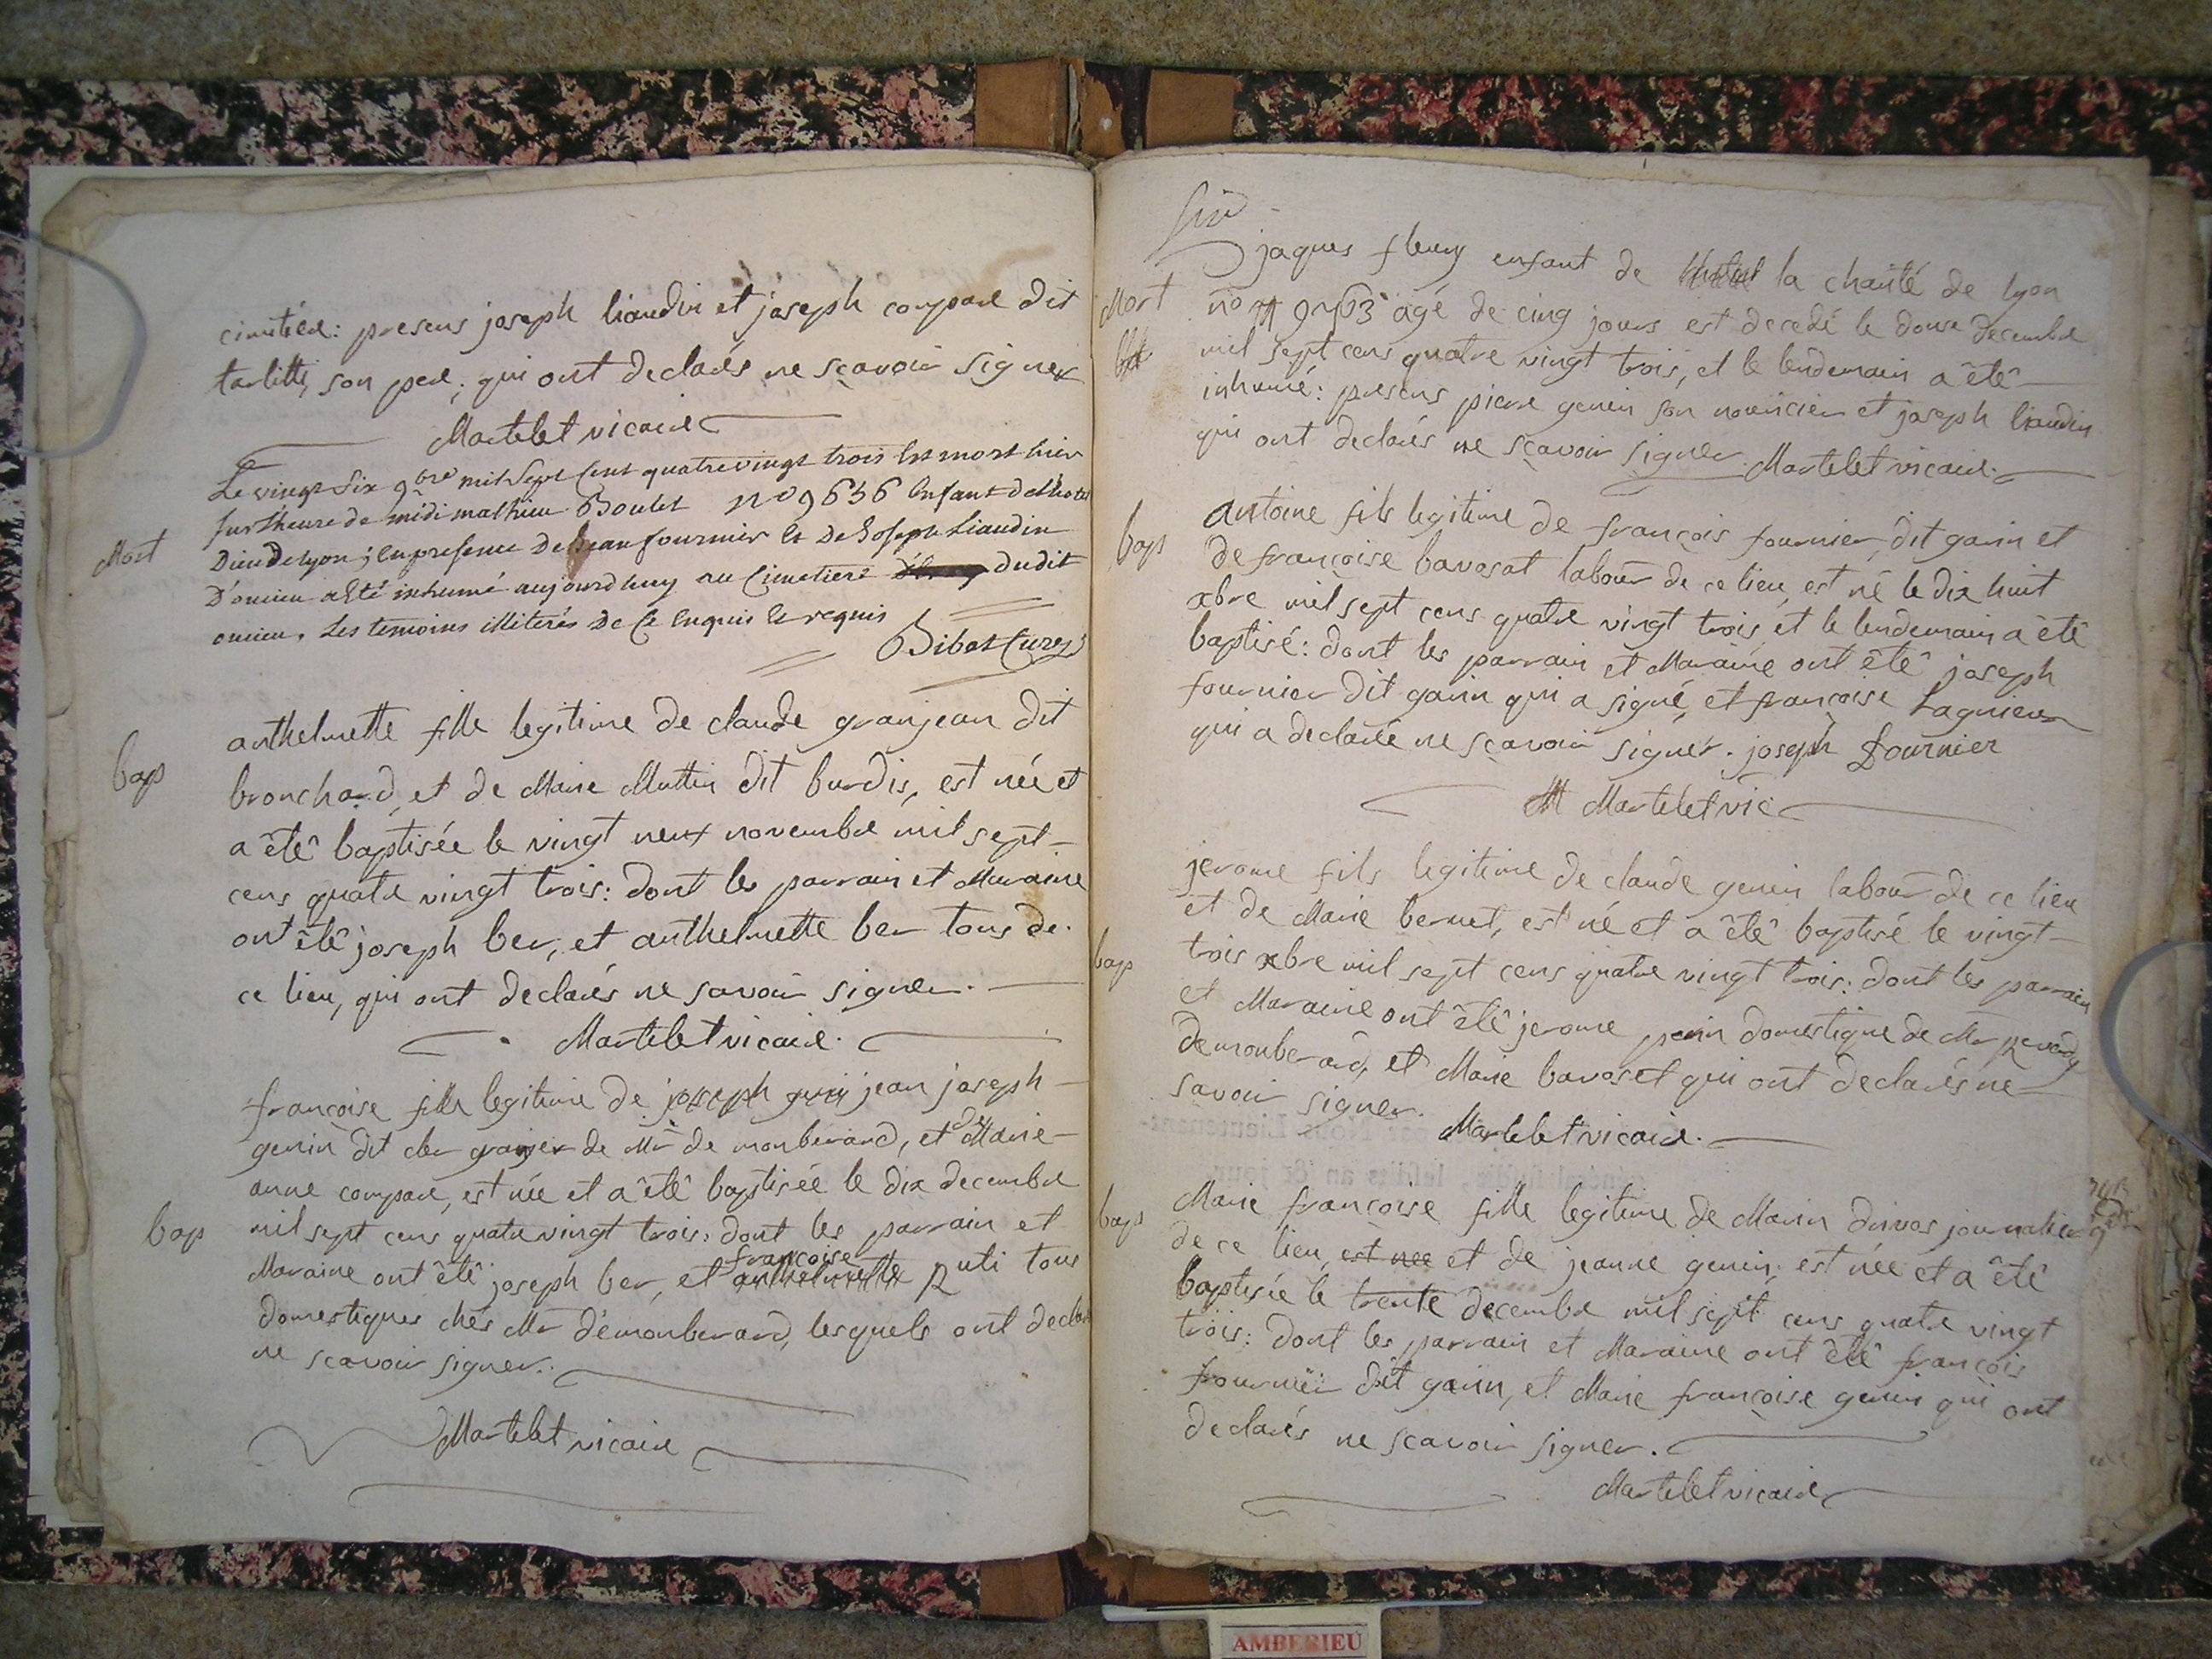 cimetière: presens joseph liaudin et joseph compare dit
tarlitti, son pere; qui ont declarés ne sçavoir signer
Martelet vicaire
Mort
Le vingt six 9bre mil sept cent quatre vingt trois est mort hier
sur l'heure de midi mathieu Boulet no 9636 enfant de l'hotel
Dieu de lyon; en presence de jean fournier et de Joseph Liaudin
D'oncieu a eté inhumé aujourdhuy au Cimetiere dudit
oncieu. Les temoins illiterés de ce enquis et requis
Bibet Curé
bap
anthelmette fille legitime de claude granjean dit
bronchard, et de Marie Muttin dit burdis, est née et
a êtê baptisée le vingt neuf novembre mil sept
cens quatre vingt trois: dont les parrain et Maraine
ont êtê joseph ber, et anthelmette ber tous de
ce lieu, qui ont declarés ne savoir signer.
Martelet vicaire.
bap
françoise fille legitime de joseph jean joseph
genin dit cler granger de Mr de monberard, et de Marie
anne compare, est née et a êtê baptisée le dix decembre
mil sept cens quatre vingt trois: dont les parrain et
françoise
Maraine ont êtê joseph ber, et anthelmette puti tous
domestiques chés Mr demonberard, lesquels ont declarés
ne scavoir signer.
Martelet vicaire
six
Mort
jaques fleury enfant de la charité de lyon
no 9763 agé de cinq jours est decedé le douse decembre
mil sept cens quatre vingt trois, et le lendemain a êtê
inhumé: presens pierre genin son nouricier et joseph liaudin
qui ont declarés ne sçavoir signer. Martelet vicaire.
bap
antoine fils legitime de françois fournier dit garin et
de françoise bavosat labour de ce lieu, est né le dix huit
xbre mil sept cens quatre vingt trois, et le lendemain a êtê
baptisé: dont les parrain et Maraine ont êtê joseph
fournier dit garin qui a signé, et françoise Lagnieu
qui a declarée ne sçavoir signer. joseph fournier
M Martelet vic
bap
jerome fils legitime de claude genin labour de ce lieu
et de Marie bernet, est né et a êtê baptisé le vingt
trois xbre mil sept cens quatre vingt trois: dont les parrain
et Maraine ont êtê jerome perin domestique de Mr
demonberard, et Marie bavoset qui ont declarés ne
savoir signer. Martelet vicaire.
bap
Marie françoise fille legitime de Marin journalier
de ce lieu, est née et de jeanne genin, est née et a êtê
baptisée le trente decembre mil sept cens quatre vingt
trois: dont les parrain et Maraine ont êtê françois
fournier dit garin, et Marie françoise genin qui ont
declarés ne scavoir signer.
Martelet vicaire
AMBERIEU